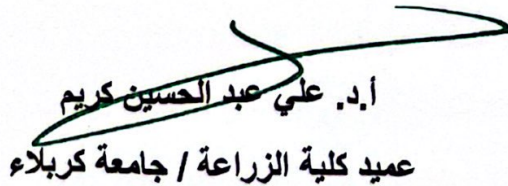 أ.د. علي عبد الحسين كريم
عميد كلية الزراعة / جامعة كربلاء